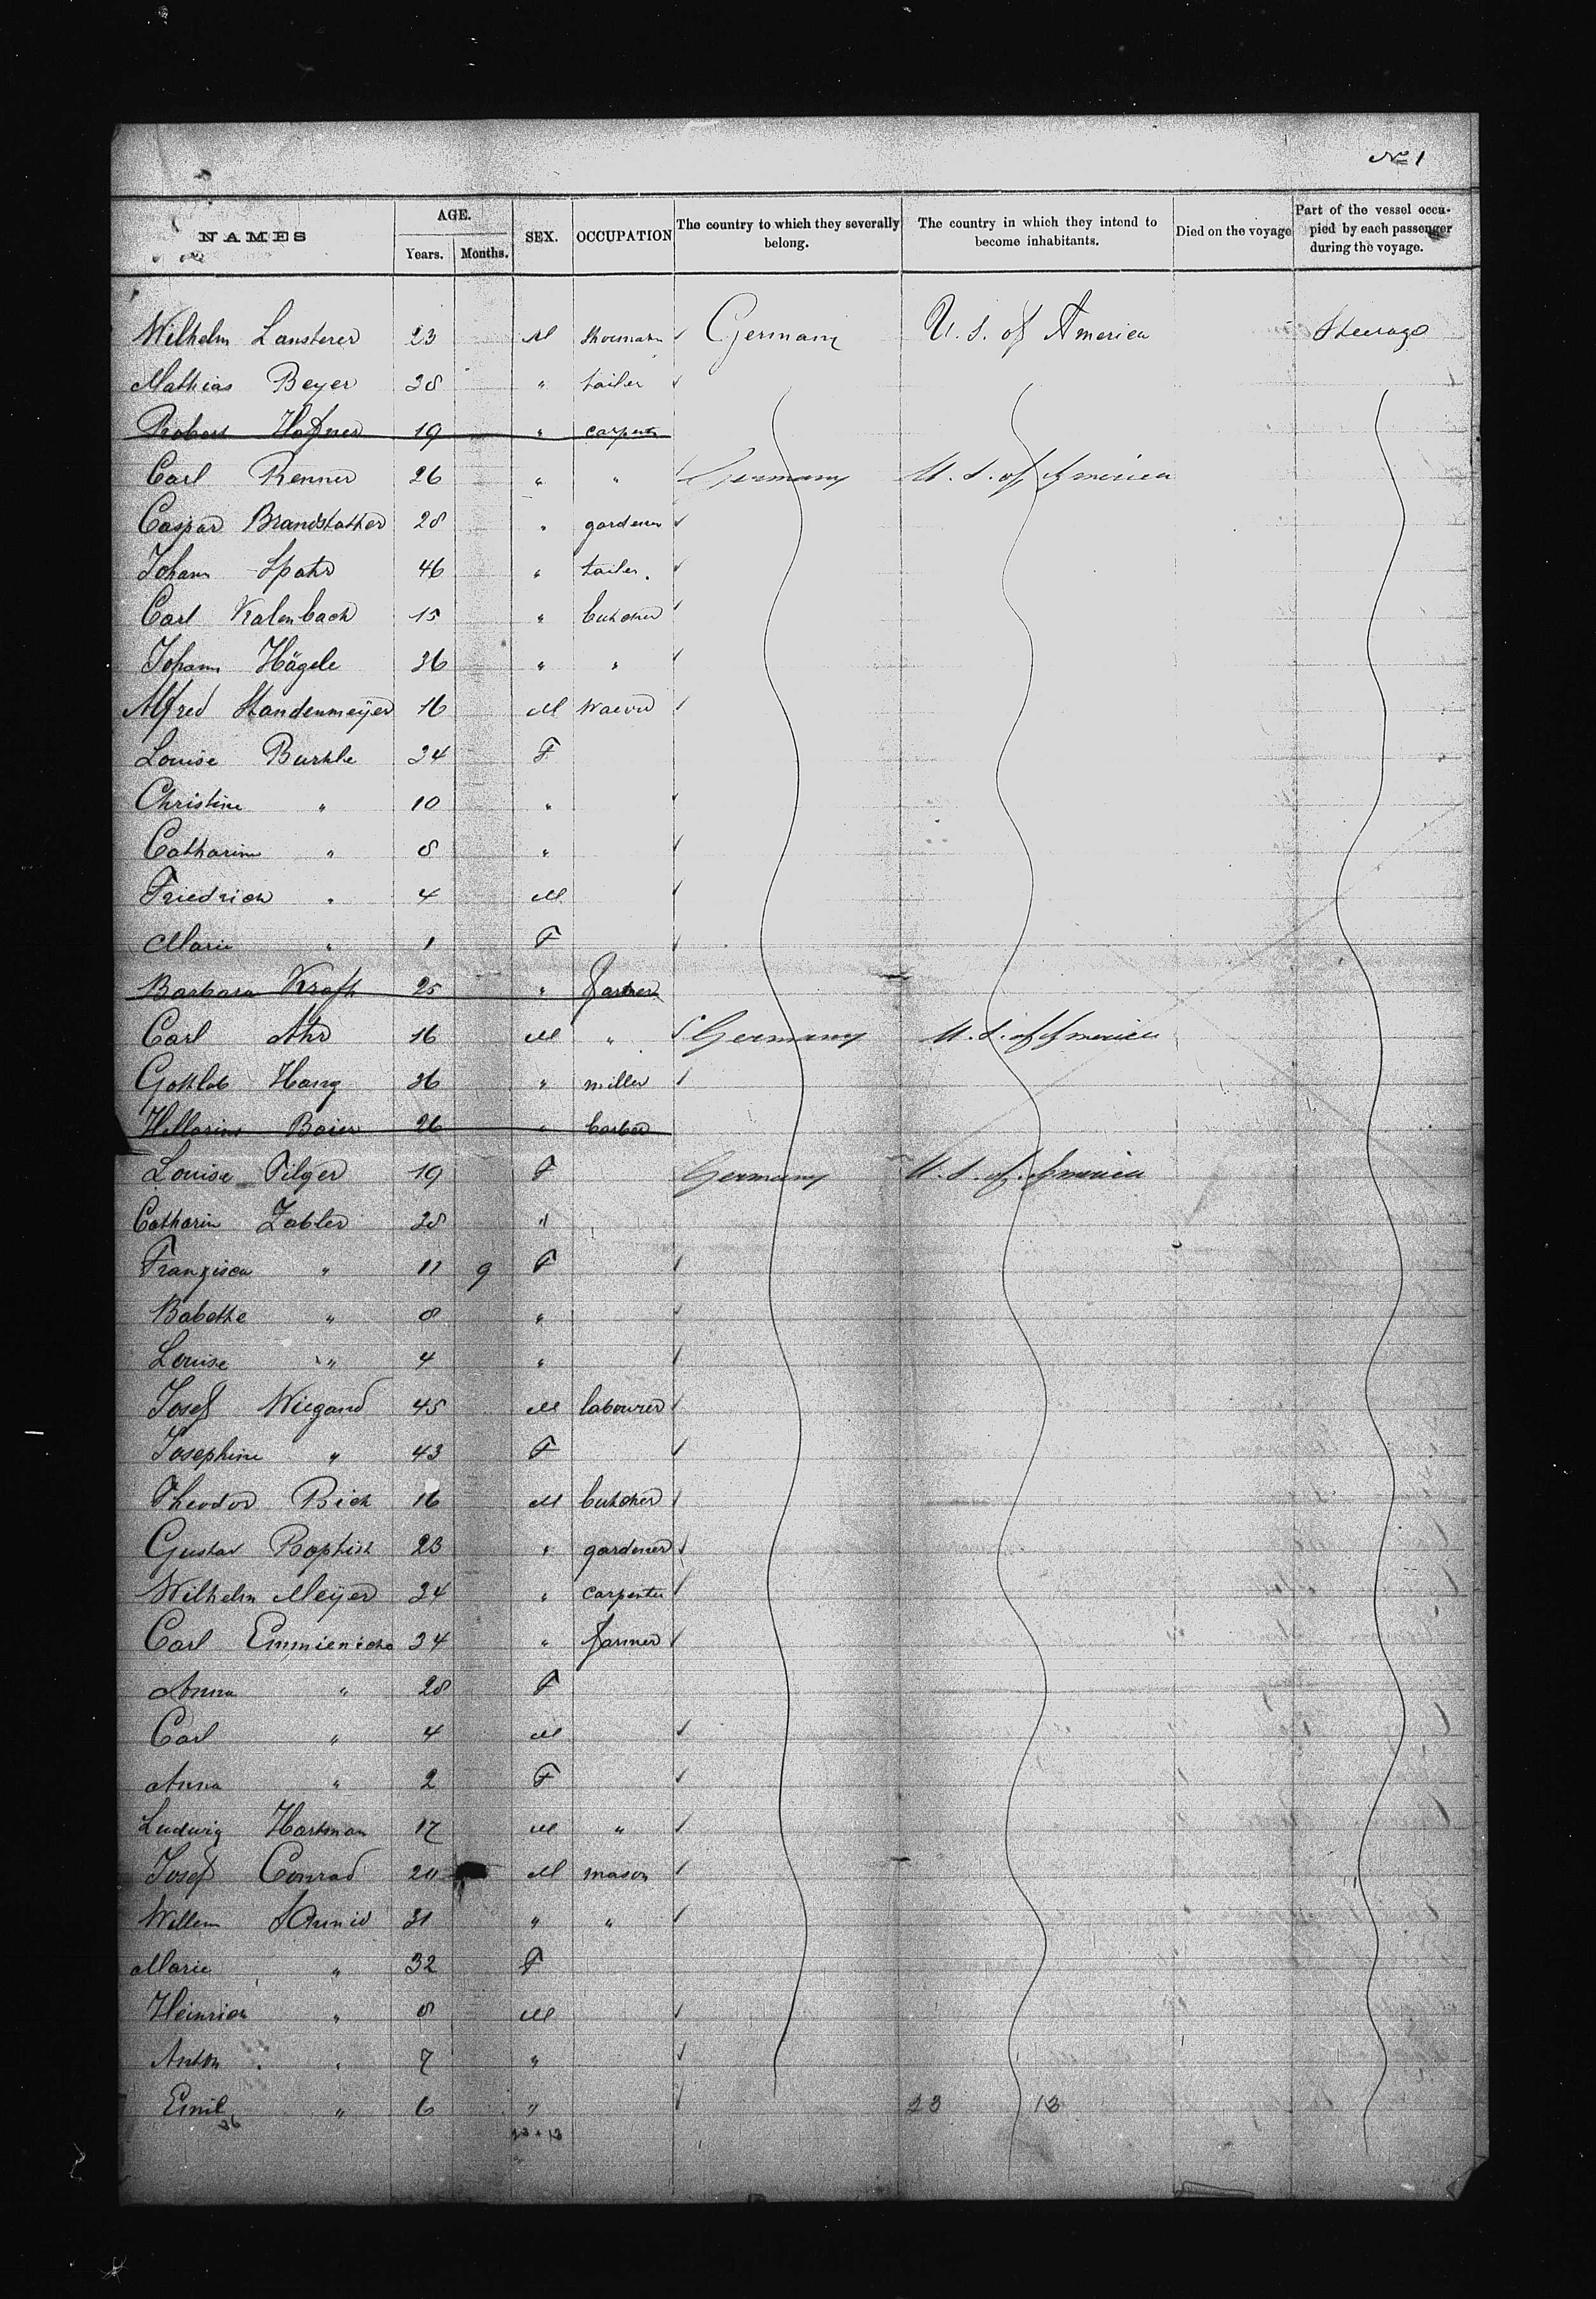 No 1
NAMES AGE. Years. Months. SEX. OCCUPATION The country to which they severally belong. The country in which they intend to become inhabitants. Died on the voyage Part of the vessel occupied by each passenger during the voyage.
Wilhelm Lansterer 23 M Shoemaker Germany U. S. of America Steerage
Mathias Beyer 28 " tailer
Robert Hafner 19 " carpenter
Carl Renner 26 " " Germany U. S. of America
Caspar Brandstatter 28 " gardener
Johann Spahr 46 " tailer.
Carl Kalenbach 15 " butcher
Johann Hägele 36 " "
Alfred Standenmeyer 16 M
Louise Burkle 34 F
Christine " 10 "
Catharina " 8 "
Friedrich " 4 M
Marie " 1 F
Barbara Kraft 25 " farmer
Carl Ahr 16 M " Germany U. S. of America
Gottlob Haug 36 " miller
Hellarius Baier 26 " barber
Louise Pilger 19 F Germany U. S. of America
Catharin Zabler 38 "
Franzisca " 11 9 F
Babethe " 8 "
Louise " 4 "
Josef Wiegand 45 M labourer
Josephine " 43 F
Theodor Bich 16 M butcher
Gustav Baptist 23 " gardener
Wilhelm Meyer 24 " carpenter
Carl 34 " farmer
Anna " 28 F
Carl " 4 M
Anna " 2 F
Ludwig Hartman 17 M "
Josef Conrad 20 M mason
Willem Schmid 31 " "
Marie " 32 F
Heinrich " 8 M
Anton " 7 "
Emil " 6 " 23 13
36 23 + 13